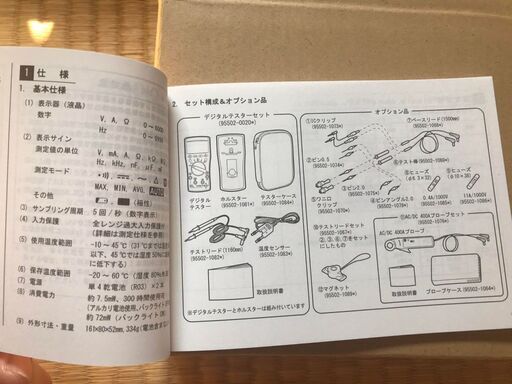 1 仕 様
1. 基本仕様
(1) 表示器 (液晶)
数字
V, A, Ω
(2) 表示サイン
測定値の単位
V, mA, A, Ω, kΩ, MΩ
測定モード
MAX, MIN, AVG,
その他
(極性)
(3) サンプリング周期
5回/秒 (数字表示)
(4) 入力保護
全レンジ過大入力保護
(詳細は測定仕様を参照
(5) 使用温度範囲
-10~45℃ (31℃までは湿度
以下、45℃では湿度50%に
に低下する)
(6) 保存温度範囲
-20~60℃ (湿度80%
(7) 電源
単4乾電池 (R03) ×2本
(8) 消費電力
約7.5mW、300時間使用可
(アルカリ電池使用、バックライト
約72mW (バックライトON)
(9) 外形寸法・重量
161×80×52mm, 334g (電池含む
2. セット構成&オプション品
デジタルテスターセット
(95502-0020*)
デジタル
テスター
ホルスター
(95502-1061*)
テスターケース
(95502-1084*)
テストリード (1160mm)
(95502-1082*)
温度センサー
(95502-1083*)
取扱説明書
※デジタルテスターとホルスターは組み付いています
オプション品
①ICクリップ
(95502-1013*)
②ピン0.5
(95502-1074*)
③ピン2.0
(95502-1075*)
④ピンアングル2.0
(95502-1076*)
⑤ワニ口
クリップ
(95502-1070*)
⑥テスト棒 (95502-1064*)
⑦ベースリード (1500mm)
(95502-1068*)
⑧ヒューズ
(φ6.3×32)
0.4A/1000V
⑨ヒューズ
(φ10×38)
11A/1000V
⑩テストリードセット
(95502-1067*)
②、③、⑥、⑦をセット
にしたもの
⑪AC/DC 400Aプローブセット
(95502-1078*)
AC/DC 400Aプローブ
⑫マグネット
(95502-1089*)
取扱説明書
プローブケース (95502-1064*)